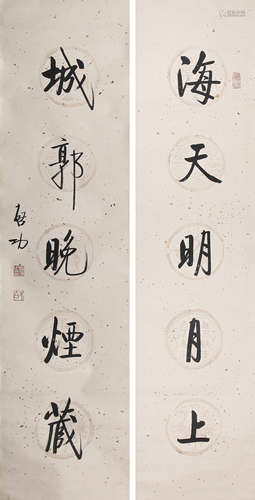 海天明月上
城郭晚煙藏
啟功